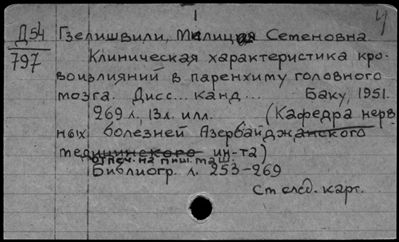 У
Д54 Гзелишвили, Милица Семеновна
797 Клиническая характеристика кро-
воизлияний в паренхиму головного
мозга. Дисс... канд... Баку, 1951.
269 л., 13 л. илл. (Кафедра нерв-
ных болезней Азербайджанского
медицинского ин-та)
отпеч. на пиш. маш.
Библиогр. л. 253-269
См след. карт.